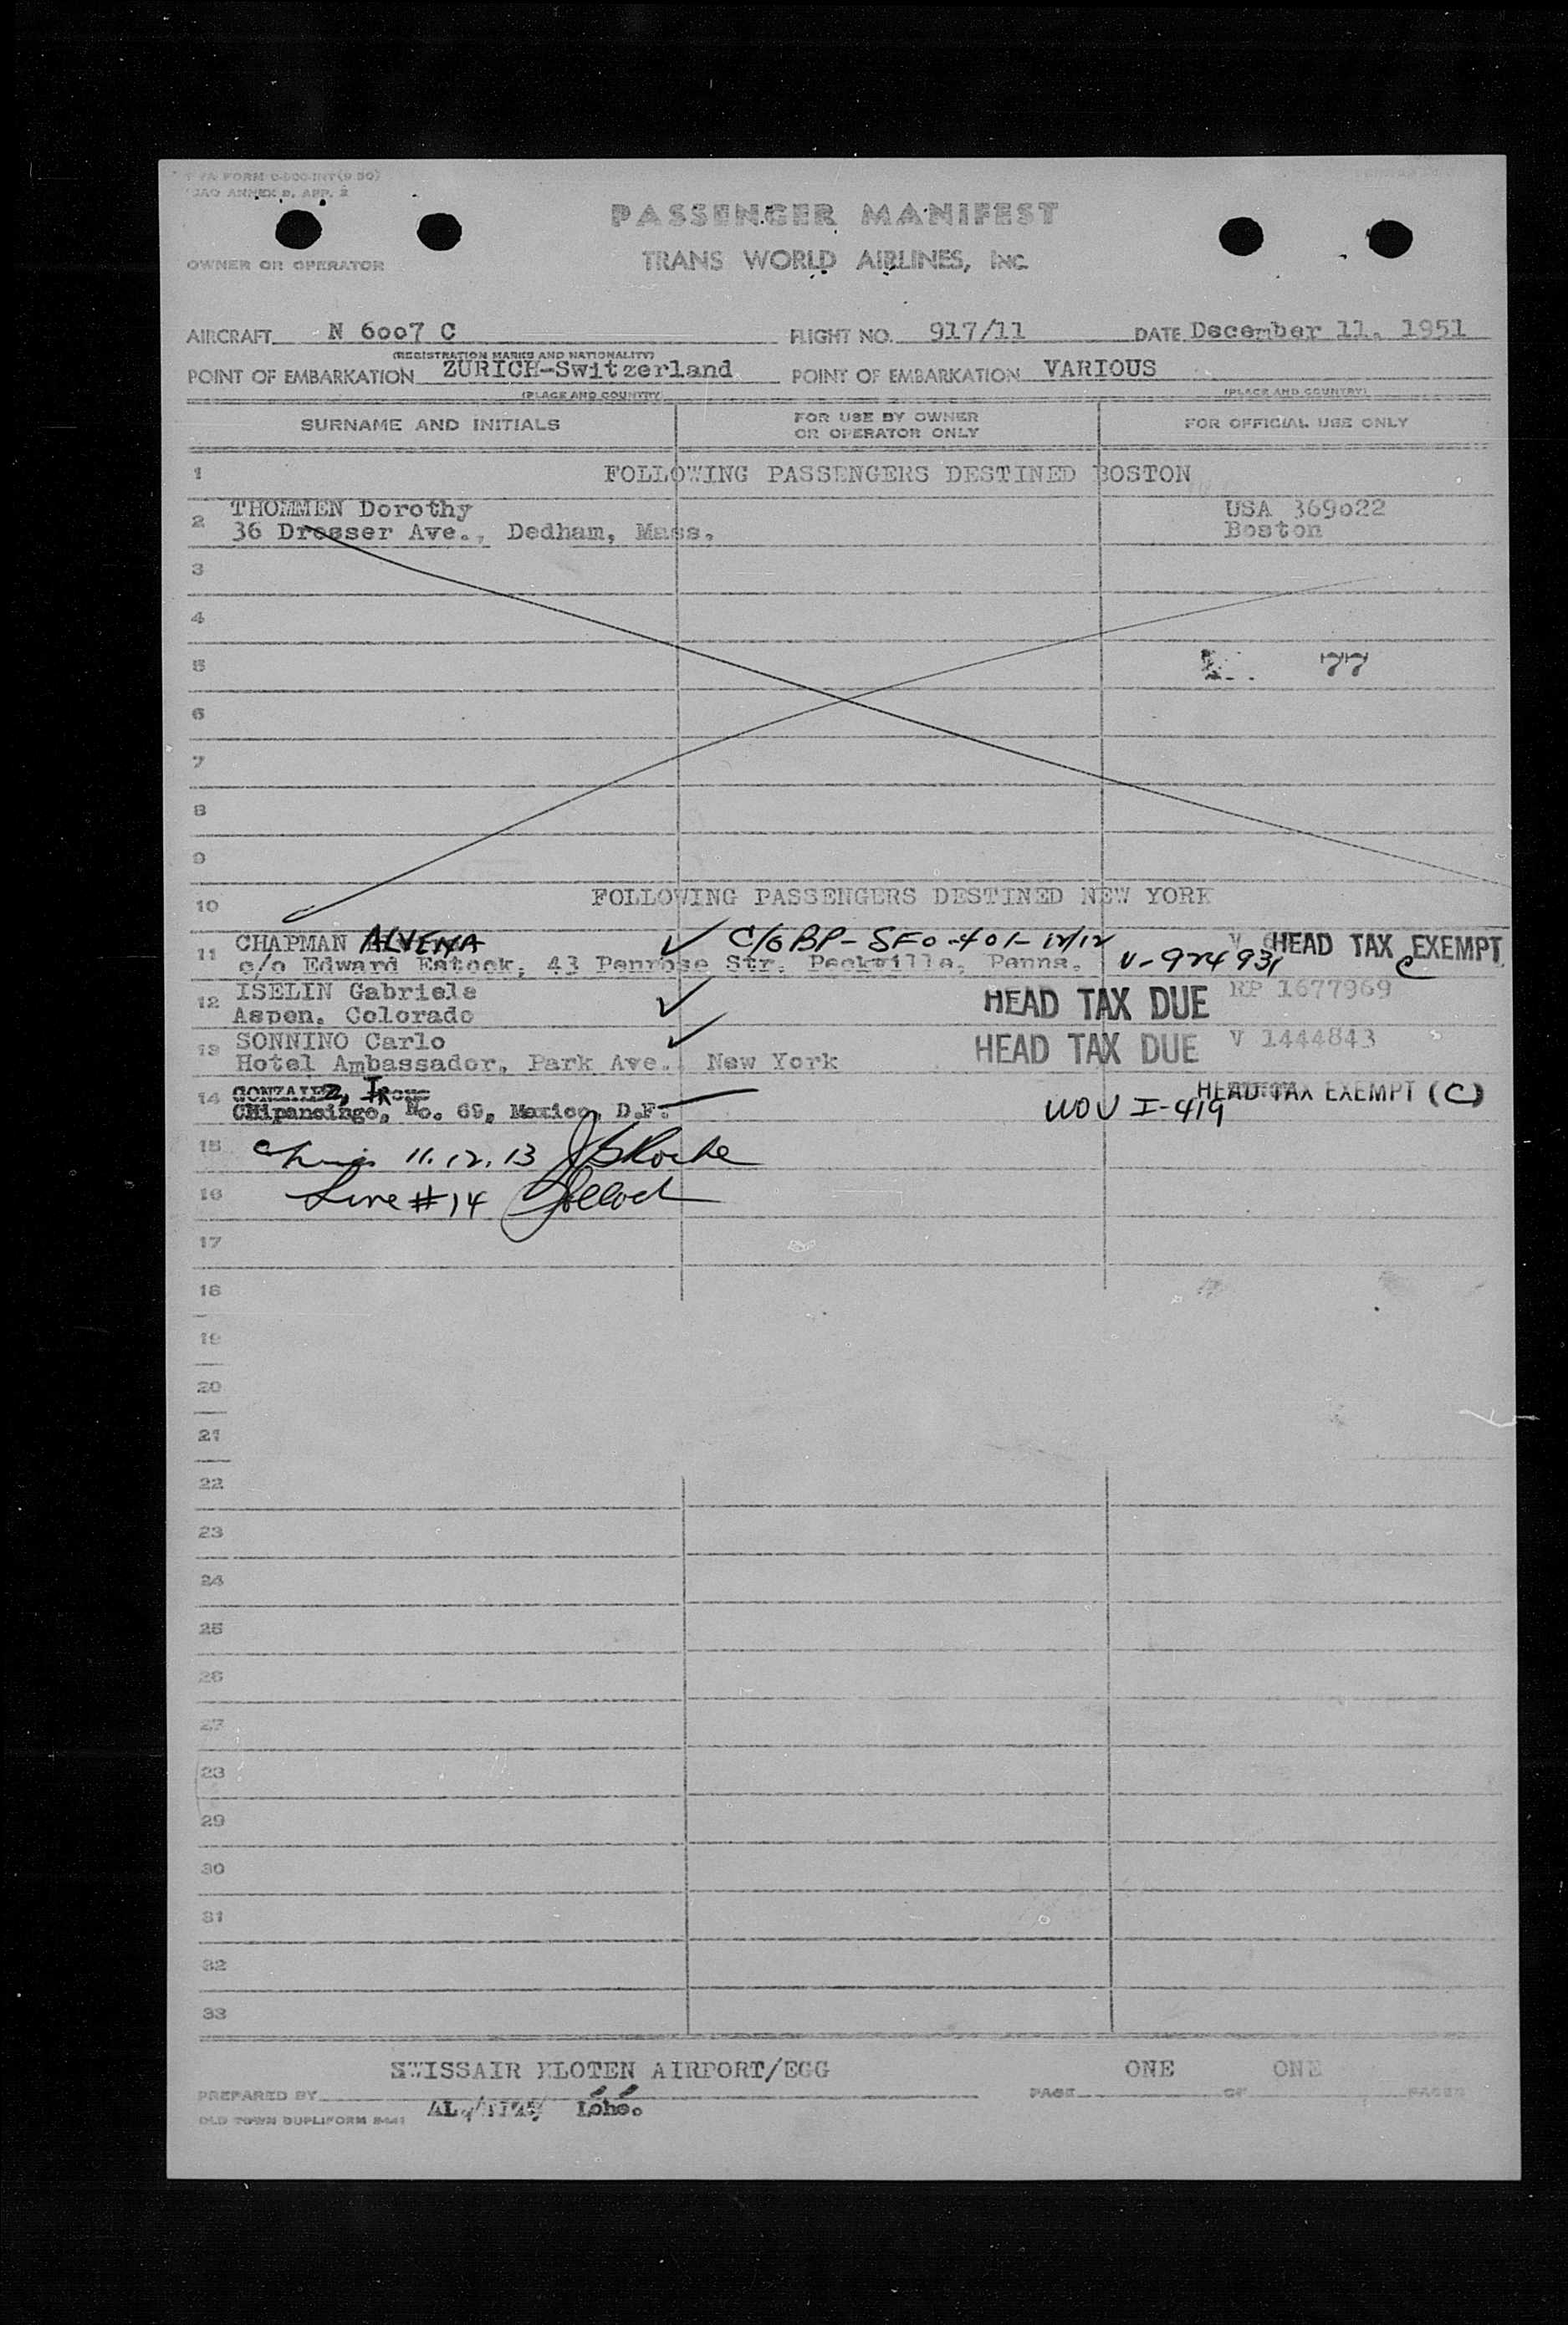 TWA FORM O-500-INT (9-50)
ICAO ANNEX 9, APP. 2
PASSENGER MANIFEST
OWNER OR OPERATOR TRANS WORLD AIRLINES, INC.
AIRCRAFT N 6007 C FLIGHT NO. 917/11 DATE December 11. 1951
(REGISTRATION MARKS AND NATIONALITY)
POINT OF EMBARKATION ZURICH-Switzerland POINT OF EMBARKATION VARIOUS
(PLACE AND COUNTRY) (PLACE AND COUNTRY)
SURNAME AND INITIALS FOR USE BY OWNER OR OPERATOR ONLY FOR OFFICIAL USE ONLY
1 FOLLOWING PASSENGERS DESTINED BOSTON
2 THOMMEN Dorothy USA 369022
36 Dresser Ave., Dedham, Mass. Boston
3
4
5 77
6
7
8
9
10 FOLLOWING PASSENGERS DESTINED NEW YORK
11 CHAPMAN ALVENA ✓ C/O BP-SFO-401-12/12 V HEAD TAX EXEMPT
c/o Edward Estock, 43 Penrose Str. Peckville, Penna. V-924931 C
12 ISELIN Gabriele ✓ HEAD TAX DUE RP 1677969
Aspen. Colorado
13 SONNINO Carlo ✓ HEAD TAX DUE V 1444843
Hotel Ambassador, Park Ave., New York
14 GONZALEZ, HEAD TAX EXEMPT (C)
Chipancingo, No. 69, Mexico, D.F. WOV I-419
15 11.12.13
16 Line #14
17
18
19
20
21
22
23
24
25
26
27
28
29
30
31
32
33
SWISSAIR KLOTEN AIRPORT/EGG
PREPARED BY PAGE ONE OF ONE PAGES
OLD TOWN DUPLIFORM